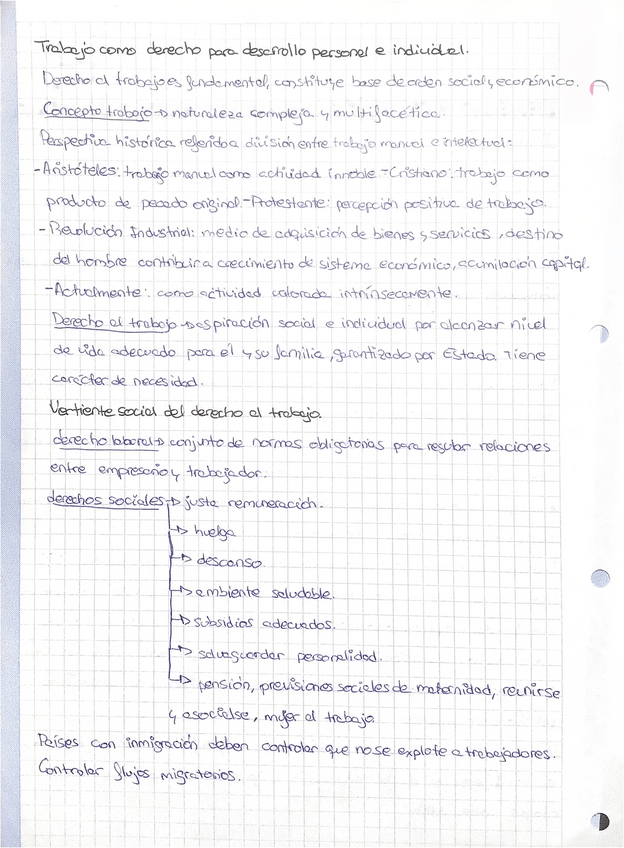 Trabajo como derecho para desarrollo personal e individual.
Derecho al trabajo es fundamental, constituye base de orden social y económico.
Concepto trabajo → naturaleza compleja y multifacética.
Perspectiva histórica referido a división entre trabajo manual e intelectual:
- Aristóteles: trabajo manual como actividad innoble - Cristiano: trabajo como
producto de pecado original. - Protestante: percepción positiva de trabajo.
- Revolución Industrial: medio de adquisición de bienes y servicios, destino
del hombre contribuir a crecimiento de sistema económico, acumilación capital.
- Actualmente: como actividad valorada intrínsecamente.
Derecho al trabajo → aspiración social e individual por alcanzar nivel
de vida adecuado para él y su familia, garantizado por Estado. Tiene
carácter de necesidad.
Vertiente social del derecho al trabajo.
derecho laboral → conjunto de normas obligatorias para regular relaciones
entre empresario y trabajador.
derechos sociales → justa remuneración.
→ huelga
→ descanso.
→ ambiente saludable.
→ subsidios adecuados.
→ salvaguardar personalidad.
→ pensión, previsiones sociales de maternidad, reunirse
y asocialse, mujer al trabajo
Países con inmigración deben controlar que no se explote a trabajadores.
Controlar flujos migratorios.